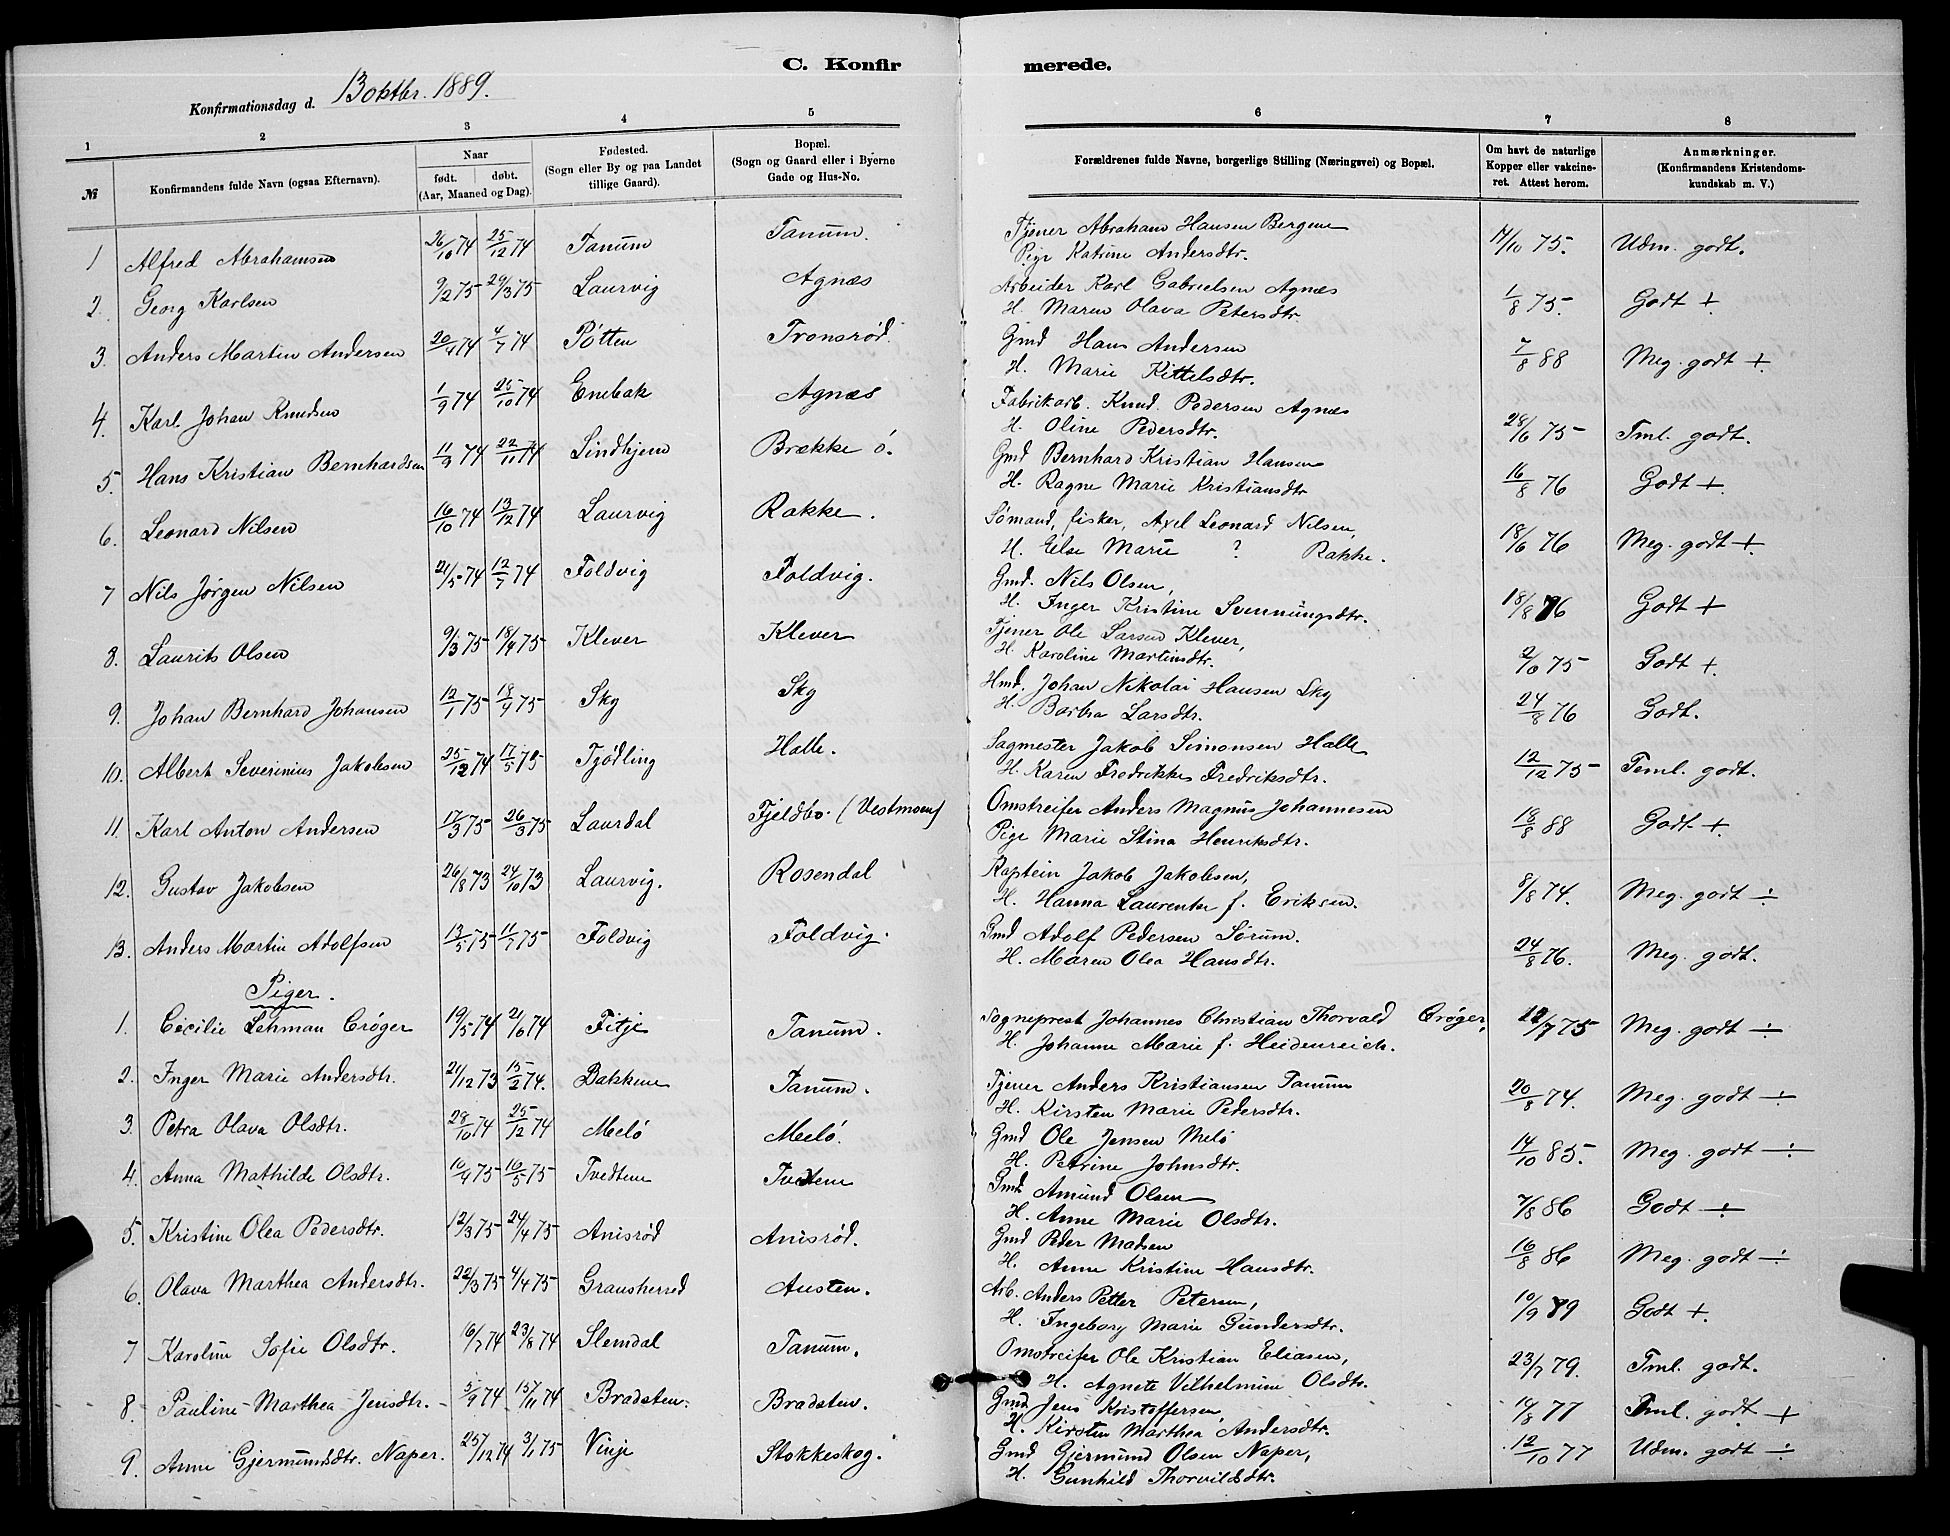 C. Konfirmerede.
Konfirmationsdag d. 13 oktbr. 1889.
1 2 3 4 5 6 7 8
№ Konfirmandens fulde Navn (ogsaa Efternavn). Naar født. døbt. (Aar, Maaned og Dag). Fødested. (Sogn eller By og paa Landet tillige Gaard). Bopæl. (Sogn og Gaard eller i Byerne Gade og Hus-No. Forældrenes fulde Navne, borgerlige Stilling (Næringsvei) og Bopæl. Om havt de naturlige Kopper eller vakcineret. Attest herom. Anmærkninger. (Konfirmandens Kristendomskundskab m. V.)
1 Alfred Abrahamsen 26/10 74 25/12 74 Tanum Tanum. Tjener Abraham Hansen Bergene 75. Udm. godt.
Pige Katrine Andersdtr.
2. Georg Karlsen 9/2 75 29/3 75 Laurvig Agnæs Arbeider Karl Gabrielsen Agnæs 1/8 75. Godt +
H. Maren Olava Petersdtr.
3. Anders Martin Andersen 20/4 74 4/7 74 Pötten Tronsrød. Gmd Hans Andersen 7/8 88 Meg. godt +
H. Marie Kittelsdtr.
4. Karl Johan Knudsen 1/9 74 25/10 74 Enebak Agnæs Fabrikarb. Knud Pedersen Agnæs 28/6 75 Tml. godt.
H. Oline Pedersdtr.
5. Hans Kristian Bernhardsen 11/9 74 22/11 74 Sindhjem Brække ö. Gmd Bernhard Kristian Hansen 16/8 76 Godt +
H. Ragne Marie Kristiansdtr
6. Leonard Nilsen 16/10 74 13/12 74 Laurvig Rakke. Sømand, fisker, Axel Leonard Nilsen, 18/6 76 Meg. godt +
H. Else Marie ? Rakke.
7 Nils Jørgen Nilsen 21/5 74 12/7 74 Foldvig Foldvig. Gmd. Nils Olsen, 18/8 76 Godt +
H. Inger Kristine Svennungsdtr.
8. Laurits Olsen 9/3 75 18/4 75 Klever Klever Tjener Ole Larsen Klever, 75 Godt +
H. Karoline Martinsdtr.
9. Johan Bernhard Johansen 12/1 75 18/4 75 Sky Sky Hmd. Johan Nikolai Hansen Sky 24/8 76 Godt.
H. Barbra Larsdtr.
10. Albert Severinius Jakobsen 25/12 74 17/5 75 Tjødling Halle. Sagmester Jakob Simonsen Halle 12/12 75 Teml. godt.
H. Karen Fredrikke Fredriksdtr.
11. Karl Anton Andersen 17/3 75 26/3 75 Laurdal Fjeldbo. (Vestmoen) Omstreifer Anders Magnus Johannesen 18/8 88 Godt +.
Pige Marie Stina Henriksdtr.
12. Gustav Jakobsen 26/8 73 24/10 73 Laurvig. Rosendal Kaptein Jakob Jakobsen, 8/8 74. Meg. godt ÷
H. Hanna Laurentze f. Eriksen.
13. Anders Martin Adolfsen 13/5 75 11/7 75 Foldvig Foldvig. Gmd Adolf Pedersen Sørum. 24/8 76. Meg. godt.
H. Maren Olea Hansdtr.
Piger.
1. Cecilie Lehman Crøger 19/5 74 21/6 74 Fitje Tanum. Sogneprest Johannes Christian Thorvald Crøger, 12/7 75 Meg. godt ÷
H. Johanne Marie f. Heidenreich.
2. Inger Marie Andersdtr. 21/12 73 15/2 74. Bakkene Tanum. Tjener Anders Kristiansen Tanum 20/8 74. Meg. godt ÷
H. Kirsten Marie Pedersdtr.
3. Petra Olava Olsdtr. 28/10 74 25/12 74 Melö Melö. Gmd Ole Jensen Melö 14/10 85. Meg. godt ÷
H. Petrine Johnsdtr.
4. Anna Mathilde Olsdtr. 10/4 75 16/5 75 Tvedtene Tvedtene Gmd. Amund Olsen 7/8 86 Godt ÷
H. Anne Marie Olsdtr.
5. Kristine Olea Pedersdtr. 12/3 75 24/4 75 Anisrød Anisrød. Gmd Peder Madsen 16/8 86 Meg. godt ÷
H. Anne Kristine Hansdtr.
6. Olava Marthea Andersdtr. 22/3 75 4/4 75 Gransherred Austen. Arb. Anders Petter Petersen, 10/9 89 Godt +.
H. Ingeborg Marie Gundersdtr.
7 Karoline Sofie Olsdtr. 16/7 74 23/8 74 Slemdal Tanum. Omstreifer Ole Kristian Eliasen, 23/7 79. Tml. godt.
H. Agnete Vilhelmine Olsdtr.
8. Pauline Marthea Jensdtr. 5/9 74 15/11 74 Bradsten. Bradsten. Gmd Jens Kristoffersen, 14/8 77 Tml. godt +
H. Kirsten Marthea Andersdtr.
9. Anne Gjermundsdtr. Naper. 25/12 74 3/1 75 Vinje Stokkeskog. Gmd Gjermund Olsen Naper, 12/10 77 Udm. godt ÷
H. Gunhild Thorvildsdtr.